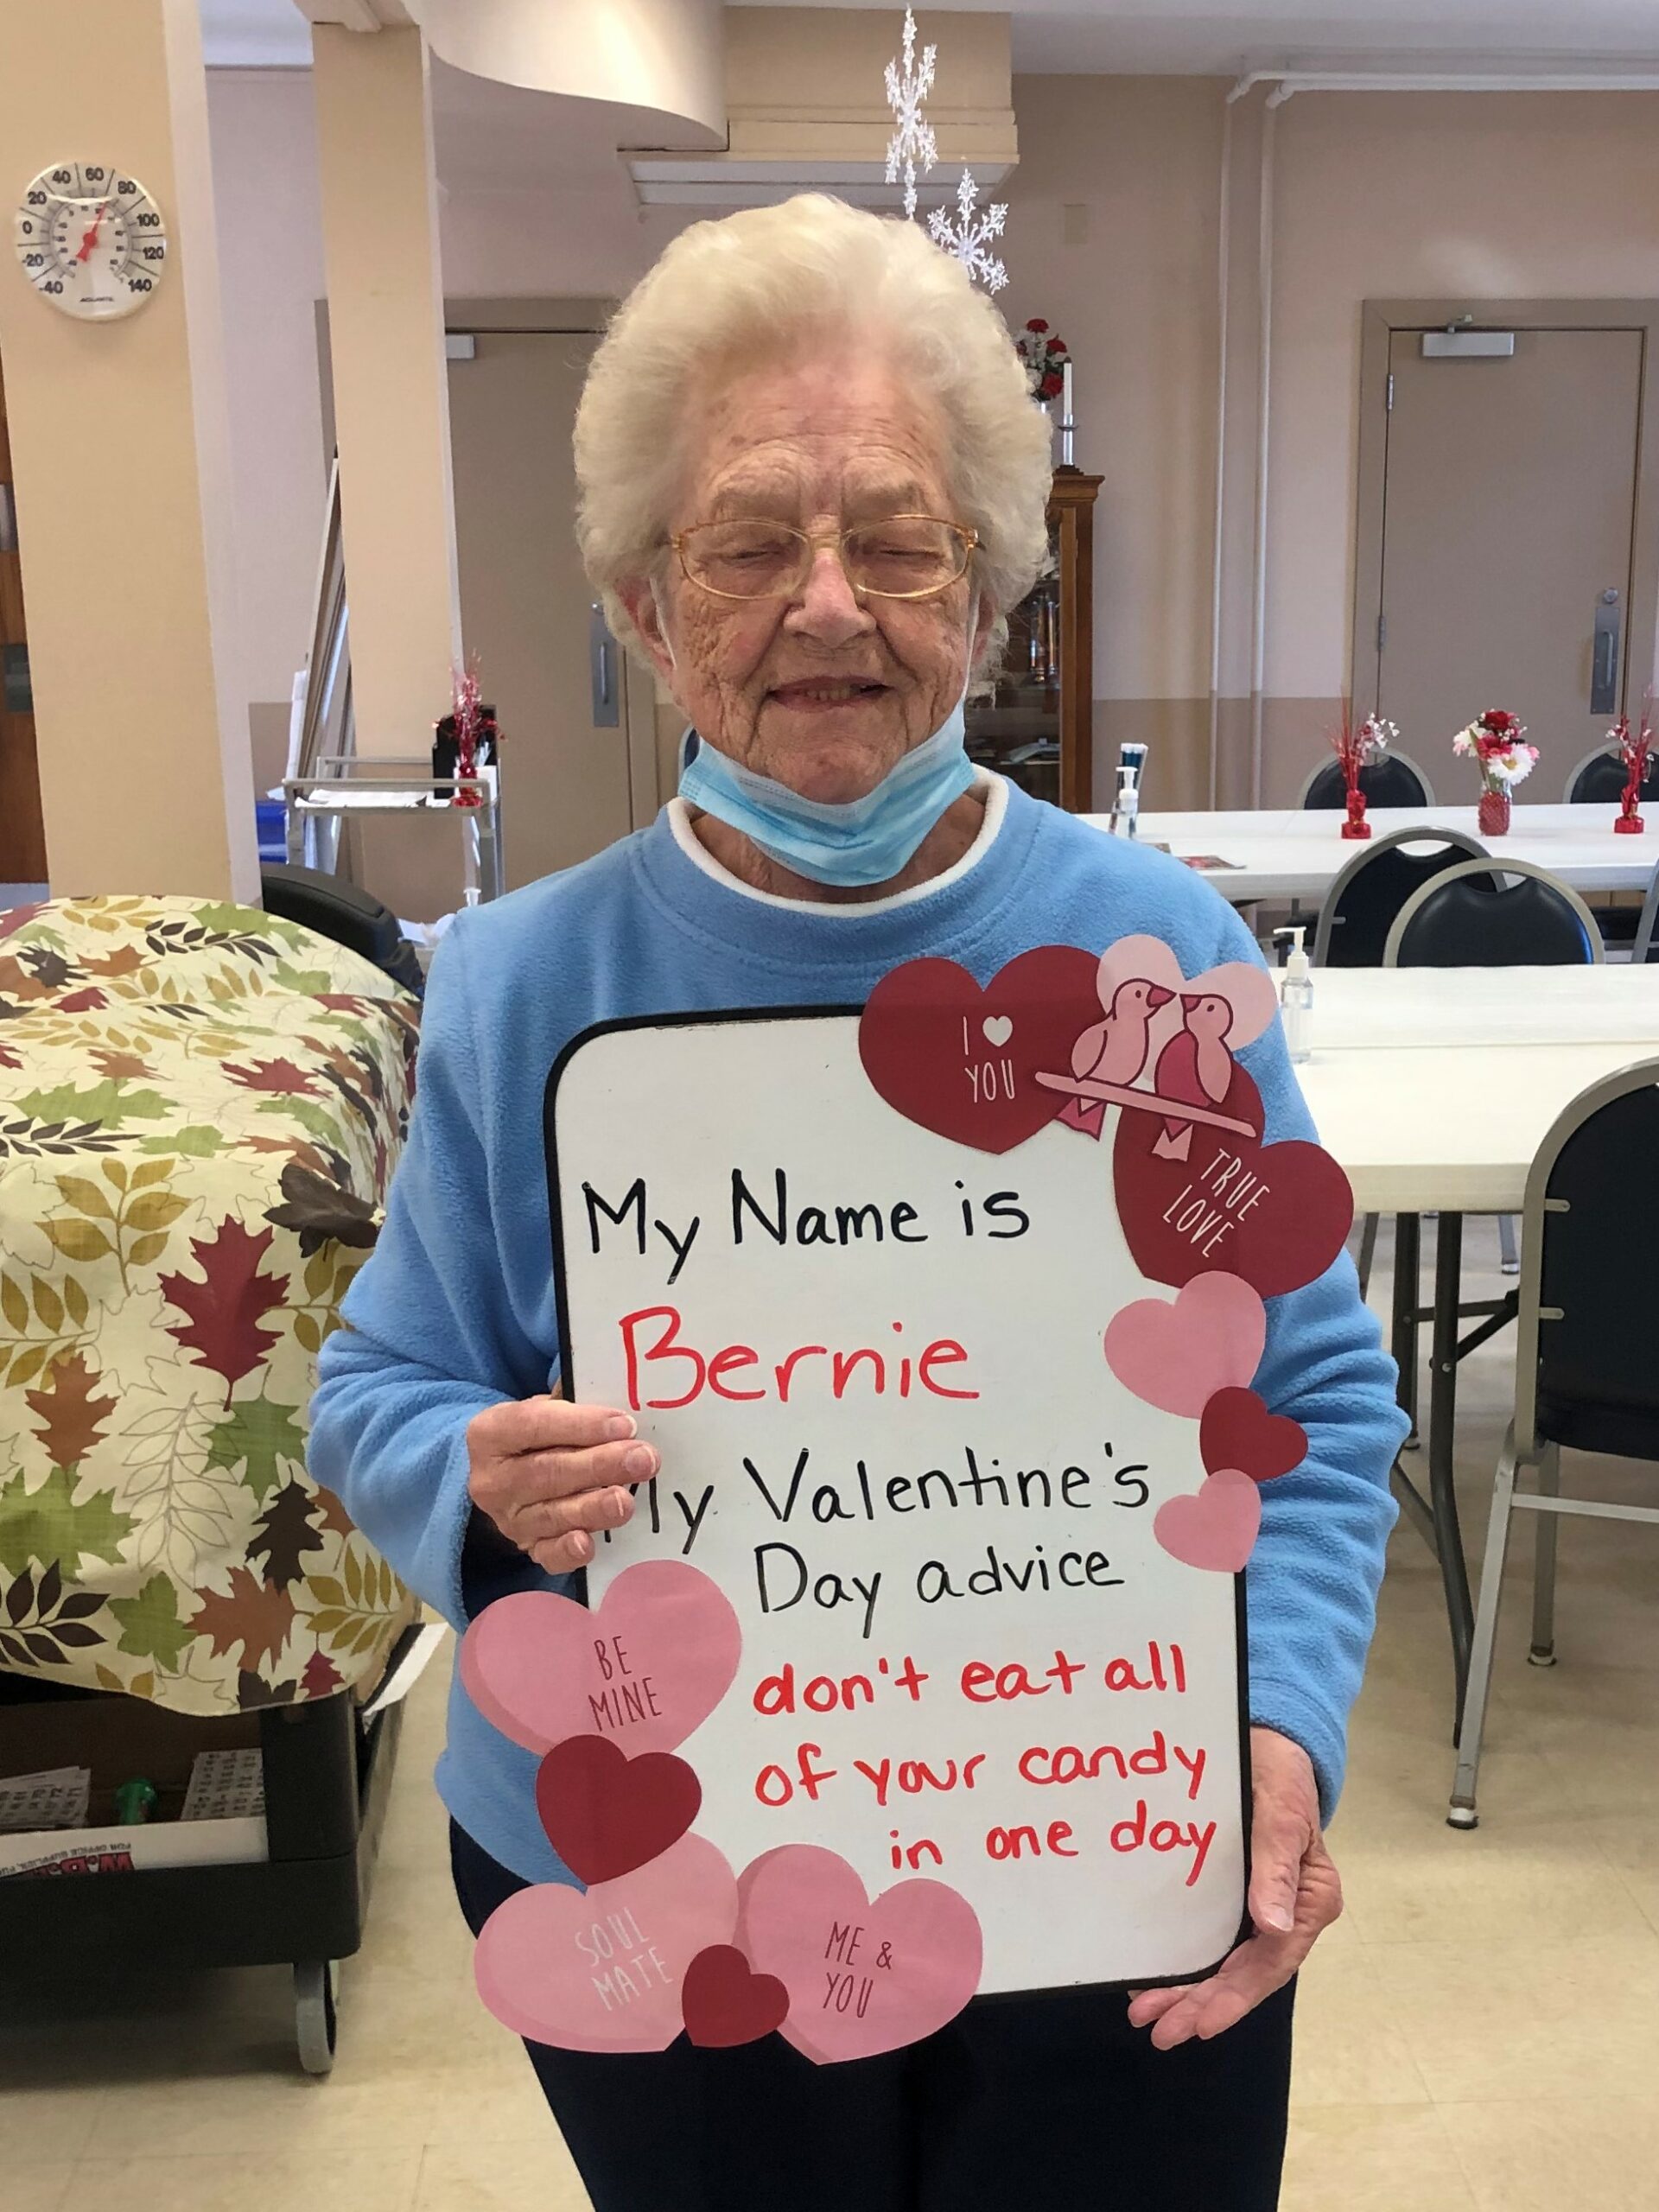 40 60
20 80
0 100
-20 120
-40 140
ACURITE
I
YOU
TRUE
LOVE
My Name is
Bernie
My Valentine's
Day advice
don't eat all
of your candy
in one day
BE
MINE
SOUL
MATE
ME &
YOU